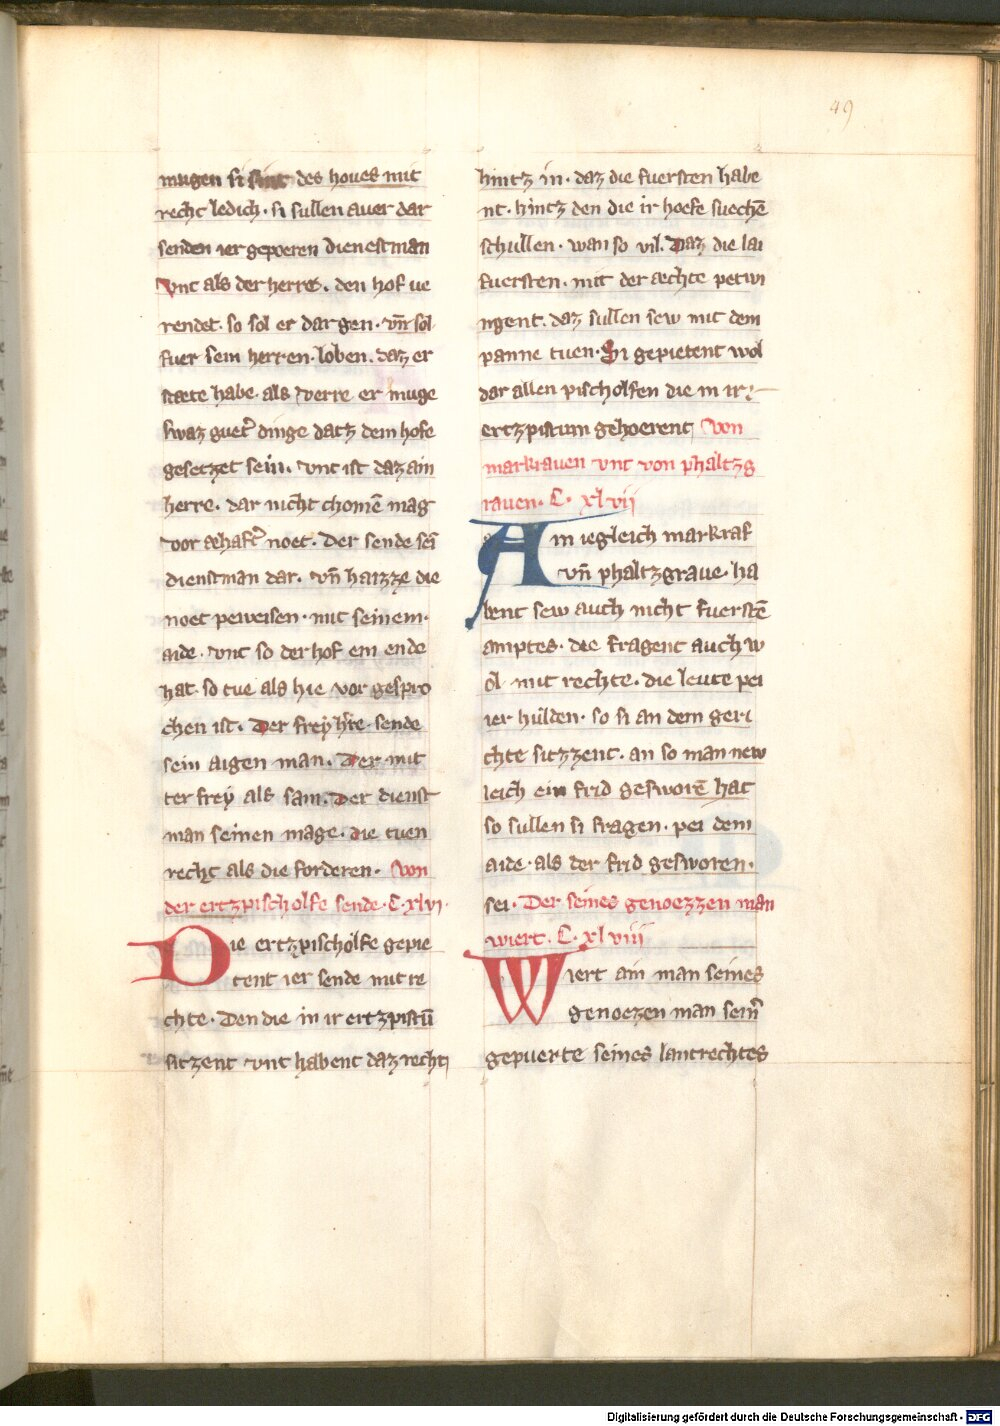 49
mugen si sint des houes mit
recht ledich · si sullen auer dar
senden ier gepoeren dienestman
Vnt als der herre . den hof ue
rendet · so sol er dar gen · vn̄ sol
fuer sein herren · loben . daz er
staete habe · als verre er muge
swaz guet̾ dinge datz dem hofe
gesetzet sein . vnt ist daz ain
herre . dar nicht chomē mag
vor æhaft̾ noet . Der sende sei
dienstman dar . vn̄ haizze die
noet peweisen · mit seinem ·
aide . vnt so der hof ein ende
hat · so tue als hie vor gespro
chen ist . Der frey h̾re · sende
sein aigen man . Der mit
ter frey als sam . Der dienst
man seinen mage . die tuen
recht als die forderen · Von
der ertzpischolfe sende · C · xlvi ·
Die ertzpischolfe gepie
tent ier sende mit re
chte · Den die in ir ertzpistū
sitzent vnt habent daz recht
hintz in · daz die fuersten habe
nt · hintz den die ir hoefe suechē
schullen · wan so vil . Daz die lai
fuersten . mit der æchte petwi
ngent . daz sullen sew mit dem
panne tuen · Si gepietent wol
dar allen pischolfen die in ir
ertzpistum gehoerent Von
markrauen vnt von phaltzg
rauen · C · xlvii
Ain iegleich markraf
vn̄ phaltzgraue · ha
bent sew auch nicht fuerstē
amptes · die fragent auch w
ol mit rechte · die leute pei
ier hulden · so si an dem geri
chte sitzzent . an so man new
leich ein frid gesworē hat
so sullen si fragen · pei dem
aide · als der frid gesworen ·
sei · Der seines genoezzen man
wiert · C · xlviii
Wiert ain man seines
genoezen man sein̾
gepuerte seines lantrechtes
Digitalisierung gefördert durch die Deutsche Forschungsgemeinschaft - DFG